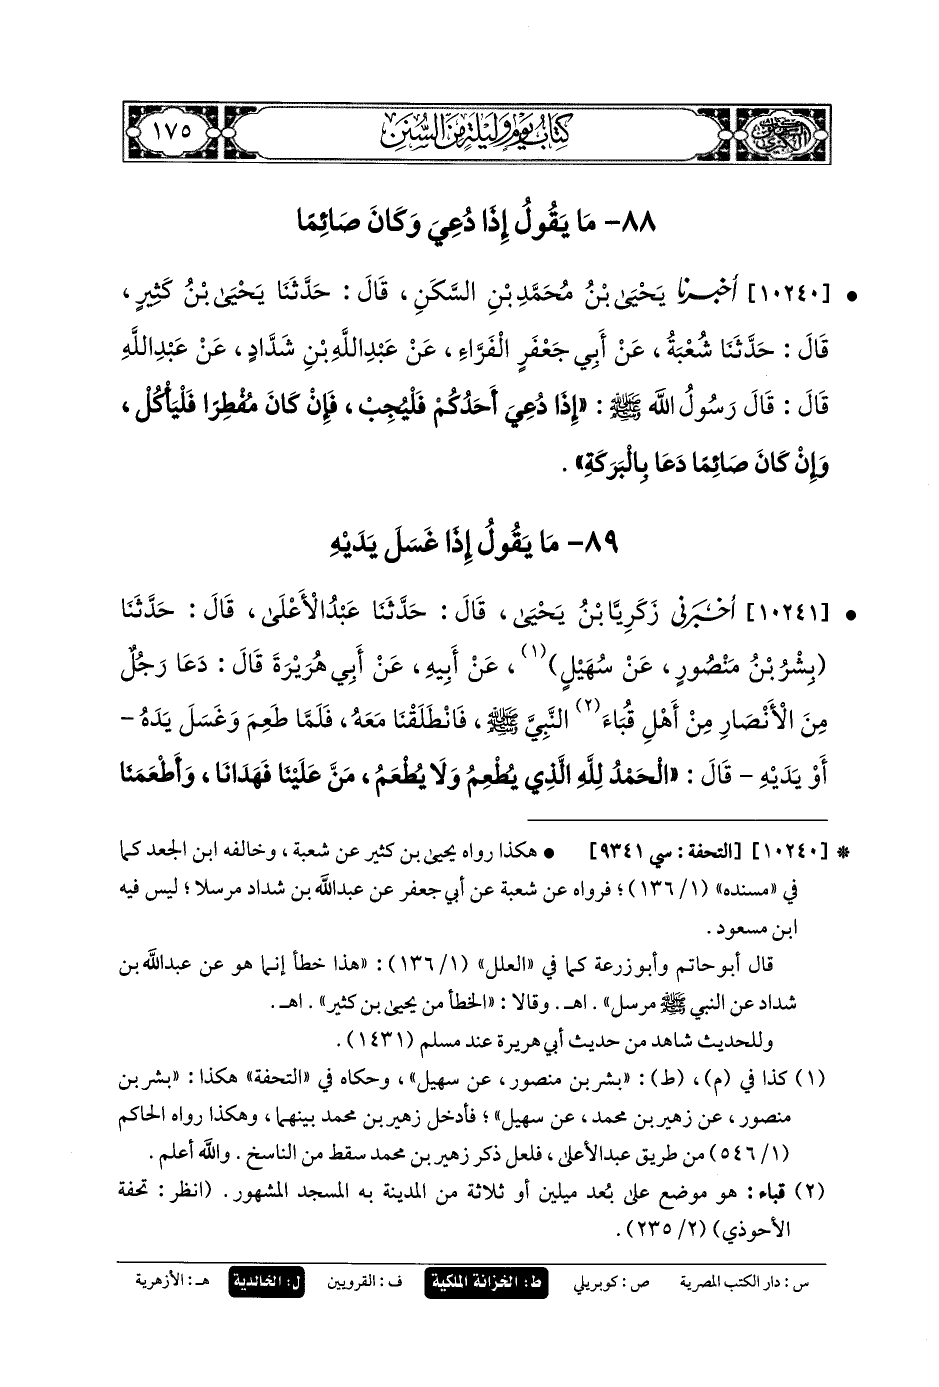 كتاب يوم وليلة من السنن
١٧٥
٨٨- مَا يَقُولُ إِذَا دُعِيَ وَكَانَ صَائِمًا
• [١٠٢٤٠] أخبرنا يَحْيَىٰ بْنُ مُحَمَّدِ بْنِ السَّكَنِ، قَالَ: حَدَّثَنَا يَحْيَىٰ بْنُ كَثِيرٍ،
قَالَ: حَدَّثَنَا شُعْبَةُ، عَنْ أَبِي جَعْفَرٍ الْفَرَّاءِ، عَنْ عَبْدِاللَّهِ بْنِ شَدَّادٍ، عَنْ عَبْدِاللَّهِ
قَالَ: قَالَ رَسُولُ اللَّهِ ﷺ: «إِذَا دُعِيَ أَحَدُكُمْ فَلْيُجِبْ، فَإِنْ كَانَ مُفْطِرًا فَلْيَأْكُلْ،
وَإِنْ كَانَ صَائِمًا دَعَا بِالْبَرَكَةِ».
٨٩- مَا يَقُولُ إِذَا غَسَلَ يَدَيْهِ
• [١٠٢٤١] أخبرني زَكَرِيَّا بْنُ يَحْيَىٰ، قَالَ: حَدَّثَنَا عَبْدُ الْأَعْلَىٰ، قَالَ: حَدَّثَنَا
(بِشْرُ بْنُ مَنْصُورٍ، عَنْ سُهَيْلٍ)(١)، عَنْ أَبِيهِ، عَنْ أَبِي هُرَيْرَةَ قَالَ: دَعَا رَجُلٌ
مِنَ الْأَنْصَارِ مِنْ أَهْلِ قُبَاءَ(٢) النَّبِيَّ ﷺ، فَانْطَلَقْنَا مَعَهُ، فَلَمَّا طَعِمَ وَغَسَلَ يَدَهُ -
أَوْ يَدَيْهِ - قَالَ: «الْحَمْدُ لِلَّهِ الَّذِي يُطْعِمُ وَلَا يُطْعَمُ، مَنَّ عَلَيْنَا فَهَدَانَا، وَأَطْعَمَنَا
* [١٠٢٤٠] [التحفة: سي ٩٣٤١] • هكذا رواه يحيى بن كثير عن شعبة، وخالفه ابن الجعد كما
في «مسنده» (١/ ١٣٦)؛ فرواه عن شعبة عن أبي جعفر عن عبدالله بن شداد مرسلا؛ ليس فيه
ابن مسعود.
قال أبو حاتم وأبو زرعة كما في «العلل» (١/ ١٣٦): «هذا خطأ إنما هو عن عبدالله بن
شداد عن النبي ﷺ مرسل». اهـ. وقالا: «الخطأ من يحيى بن كثير». اهـ.
وللحديث شاهد من حديث أبي هريرة عند مسلم (١٤٣١).
(١) كذا في (م)، (ط): «بشر بن منصور، عن سهيل»، وحكاه في «التحفة» هكذا: «بشر بن
منصور، عن زهير بن محمد، عن سهيل»؛ فأدخل زهير بن محمد بينهما، وهكذا رواه الحاكم
(١/ ٥٤٦) من طريق عبدالأعلى، فلعل ذكر زهير بن محمد سقط من الناسخ. والله أعلم.
(٢) قباء: هو موضع على بُعد ميلين أو ثلاثة من المدينة به المسجد المشهور. (انظر: تحفة
الأحوذي) (٢/ ٢٣٥).
س: دار الكتب المصرية ص: كوبريلي ط: الخزانة الملكية ف: القرويين ل: الخالدية هـ: الأزهرية